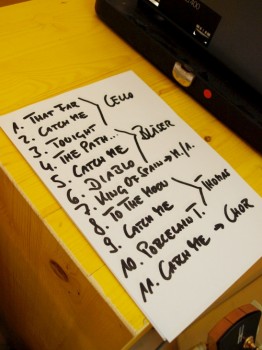 1. THAT FAR
2. CATCH ME
CELLO
3. TONIGHT
4. THE PATH..
5. CATCH ME
BLÄSER
6. DIABLO
7. KING OF SPAIN →
8. TO THE MOON
9. CATCH ME
THOMAS
10. PORCELAIN T.
11. CATCH ME → CHOR